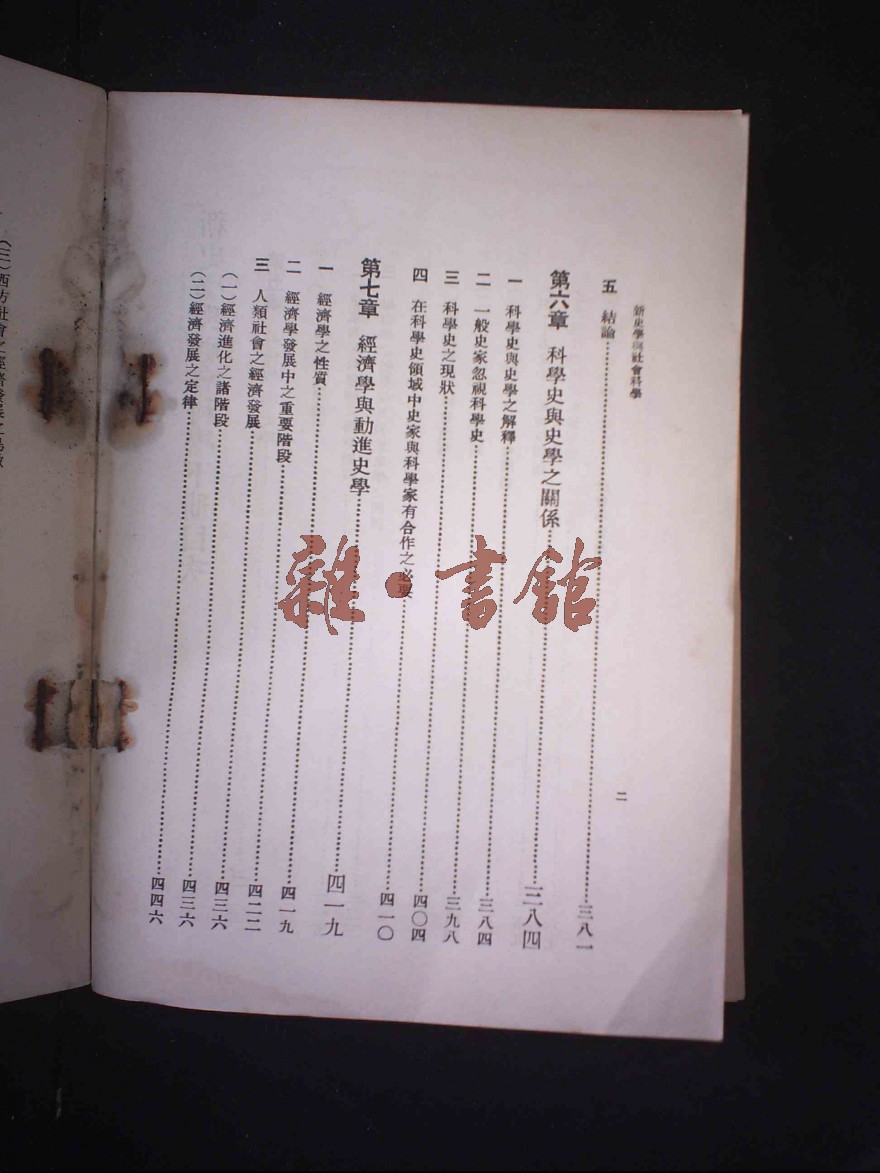 新史學與社會科學
二
五 結論……三八一
第六章 科學史與史學之關係……三八四
一 科學史與史學之解釋……三八四
二 一般史家忽視科學史……三九八
三 科學史之現狀……四〇四
四 在科學史領域中史家與科學家有合作之必要……四一〇
第七章 經濟學與動進史學……四一九
一 經濟學之性質……四一九
二 經濟學發展中之重要階段……四二二
三 人類社會之經濟發展……四三六
(一)經濟進化之諸階段……四三六
(二)經濟發展之定律……四四六
(三)西方社會之經濟發展之
雜·書館